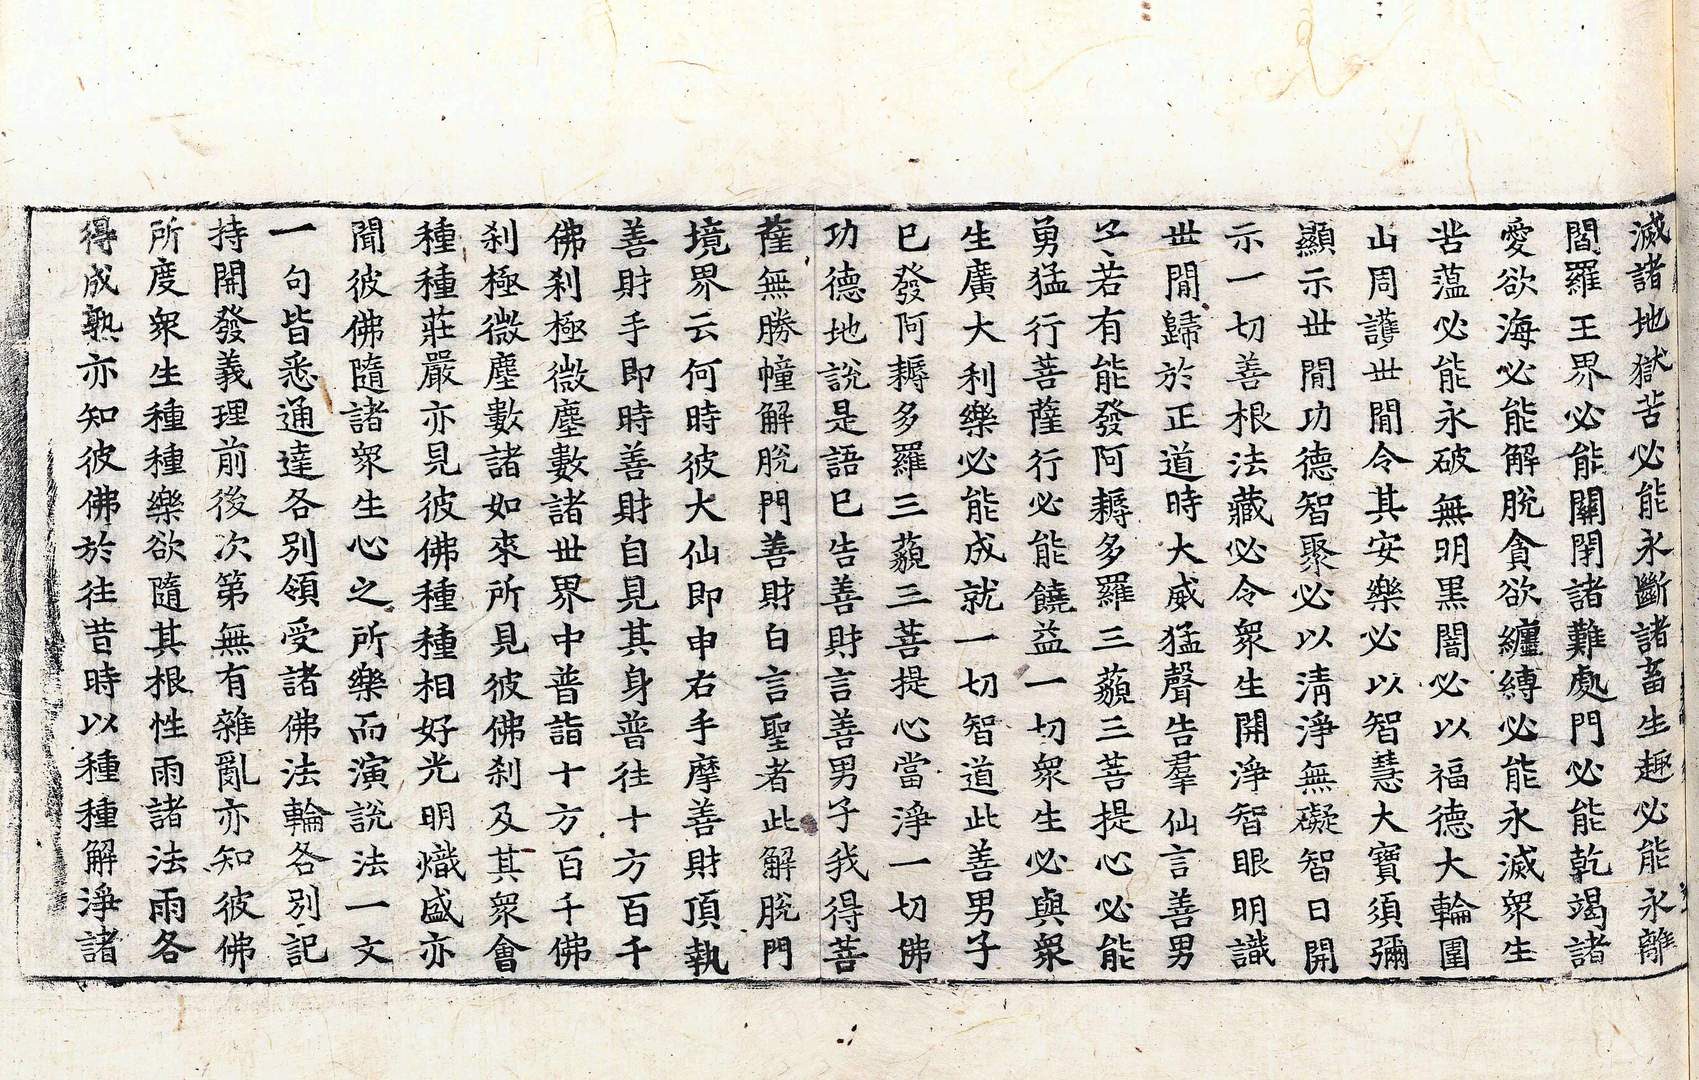 滅諸地獄苦必能永斷諸畜生趣必能永離
閻羅王界必能關閉諸難處門必能乾竭諸
愛欲海必能解脫貪欲纏縛必能永滅眾生
苦蘊必能永破無明黑闇必以福德大輪圍
山周護世間令其安樂必以智慧大寶須彌
顯示世間功德智聚必以清淨無礙智日開
示一切善根法藏必令眾生開淨智眼明識
世間歸於正道時大威猛聲告羣仙言善男
子若有能發阿耨多羅三藐三菩提心必能
勇猛行菩薩行必能饒益一切眾生必與眾
生廣大利樂必能成就一切智道此善男子
已發阿耨多羅三藐三菩提心當淨一切佛
功德地說是語已告善財言善男子我得菩
薩無勝幢解脫門善財白言聖者此解脫門
境界云何時彼大仙即申右手摩善財頂執
善財手即時善財自見其身普往十方百千
佛剎極微塵數諸世界中普詣十方百千佛
剎極微塵數諸如來所見彼佛剎及其眾會
種種莊嚴亦見彼佛種種相好光明熾盛亦
聞彼佛隨諸眾生心之所樂而演說法一文
一句皆悉通達各別領受諸佛法輪各別記
持開發義理前後次第無有雜亂亦知彼佛
所度眾生種種樂欲隨其根性雨諸法雨各
得成熟亦知彼佛於往昔時以種種解淨諸